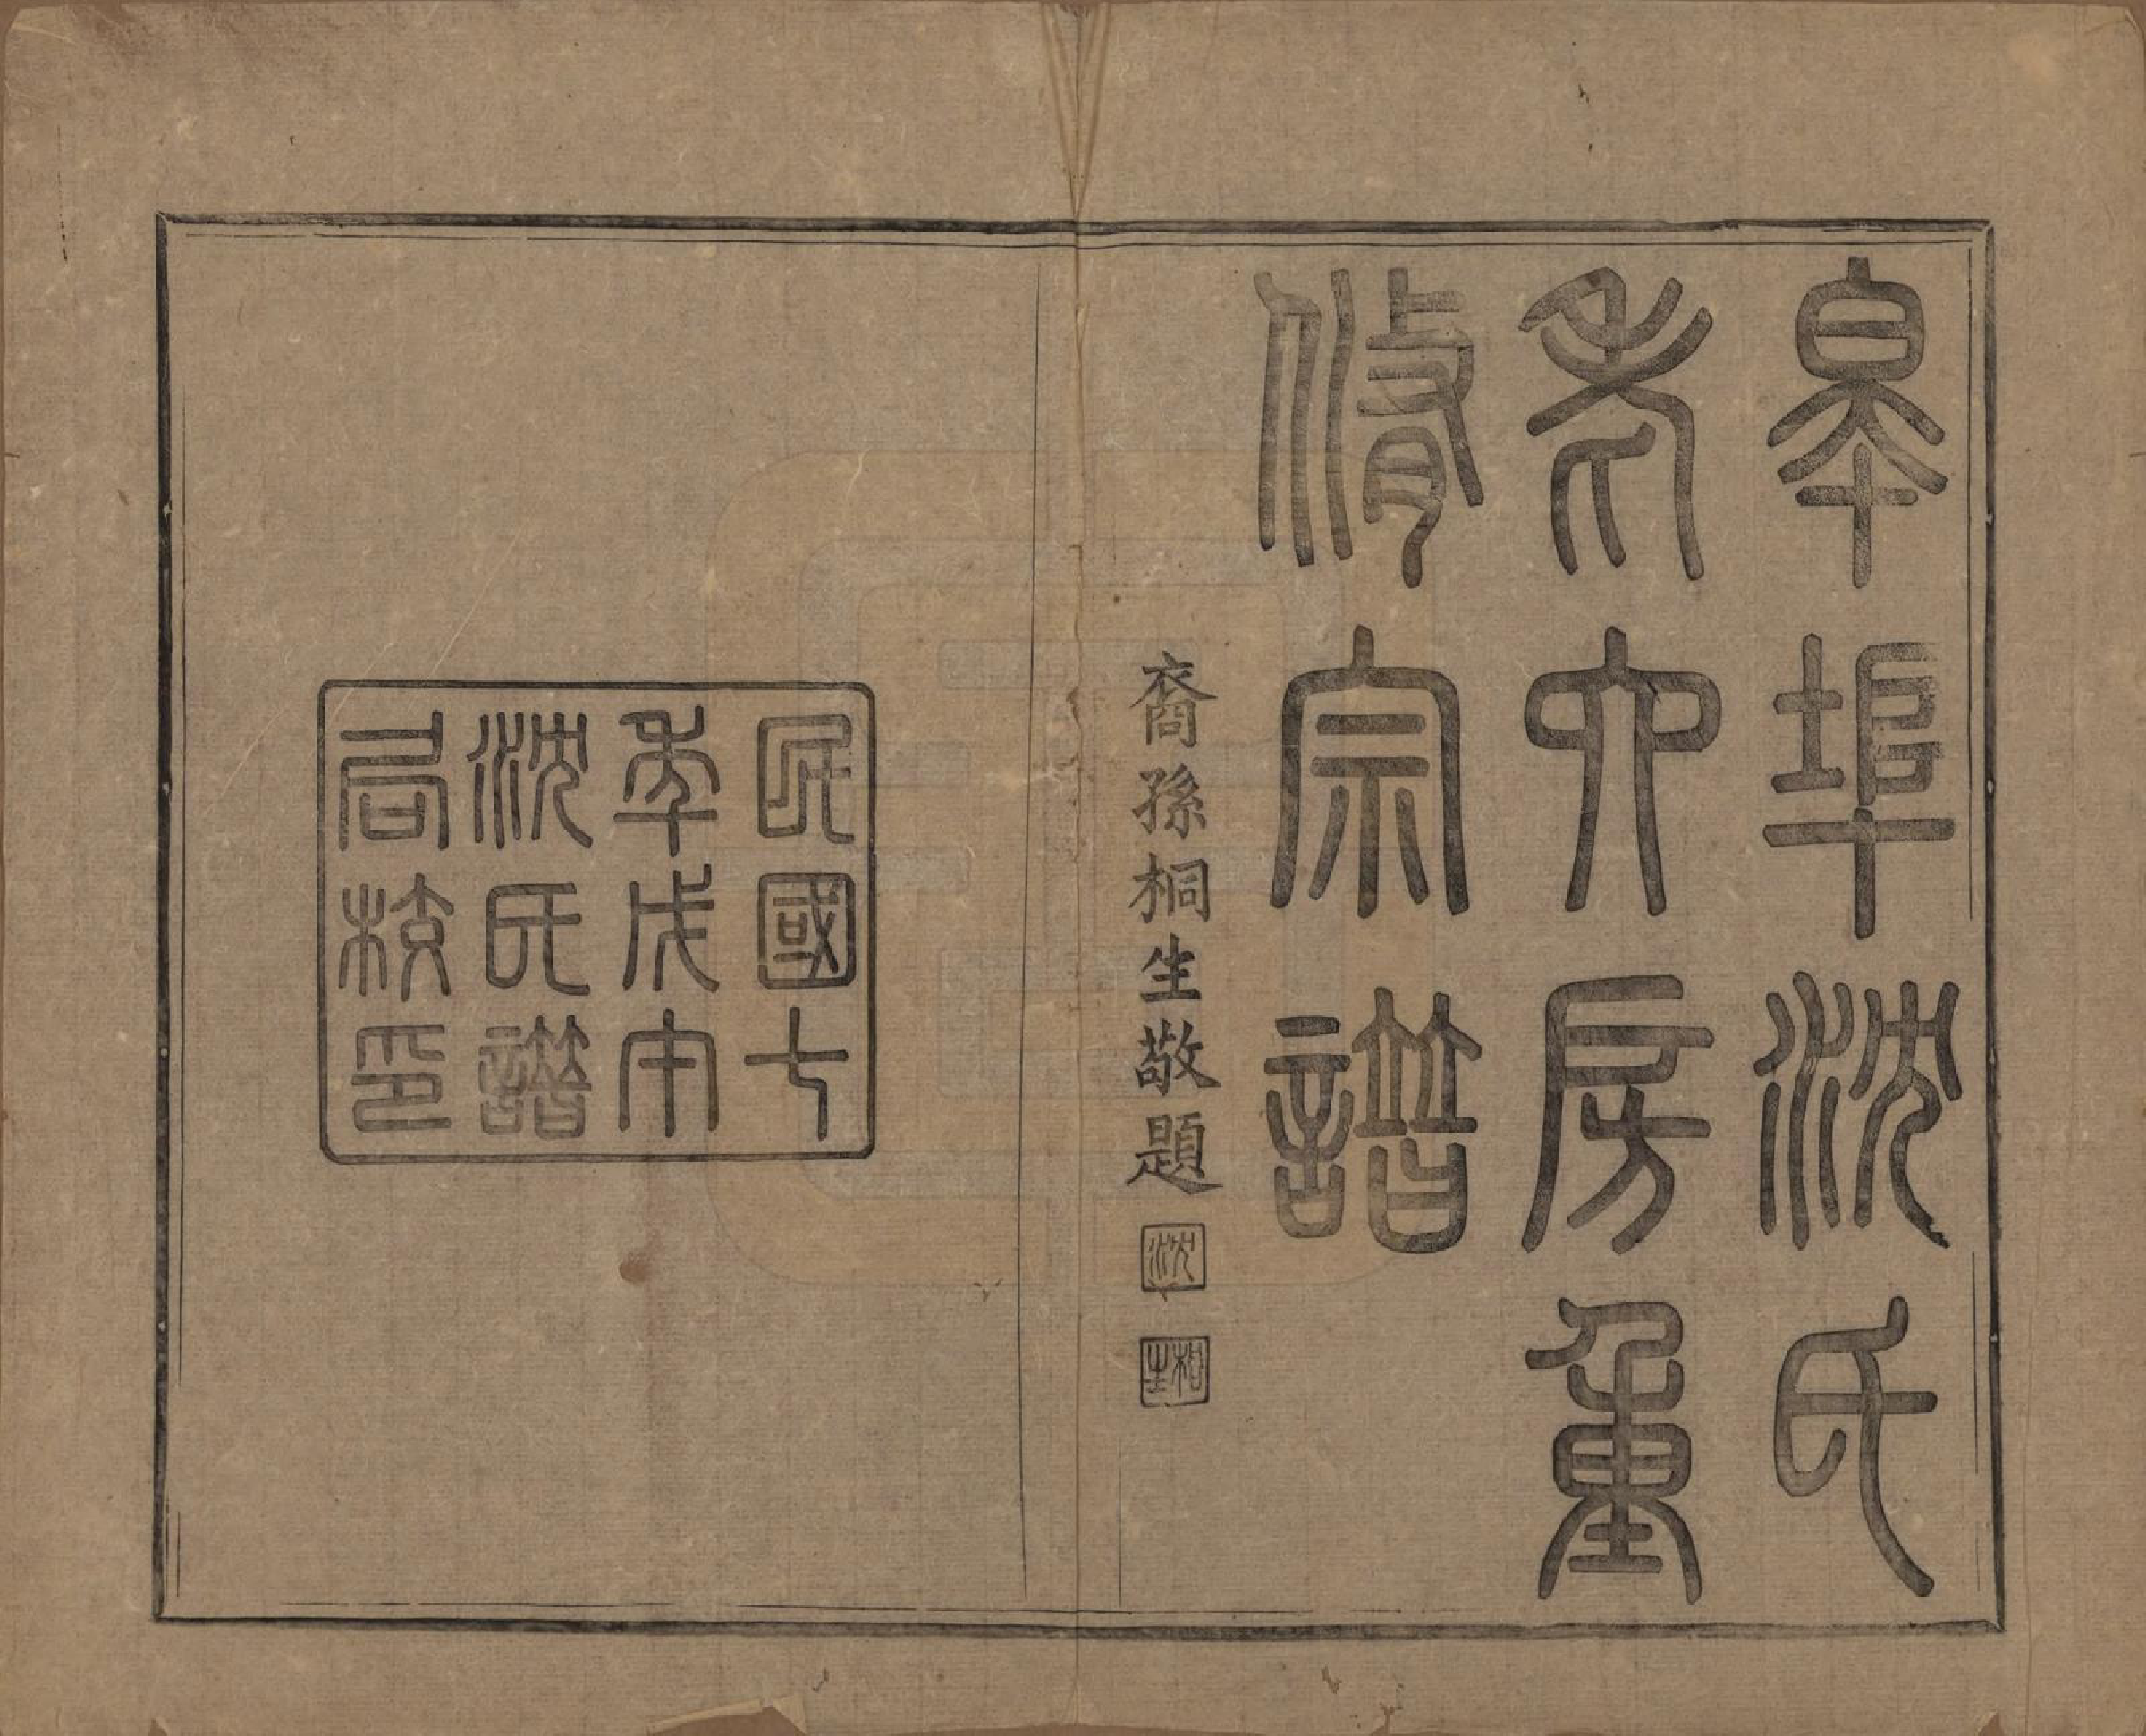 皋埠沈氏
老六房重
脩宗譜
裔孫桐生敬題
沈
桐生
民國七
年戊午
沈氏譜
局校印